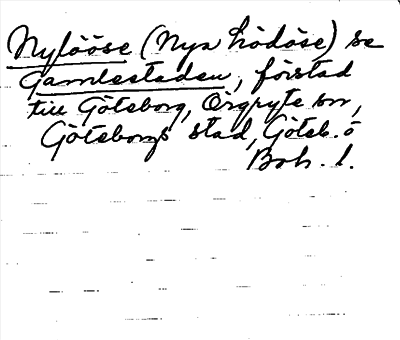 Nylööse (Nya Lödöse) se
Gamlestaden, förstad
till Göteborg, Örgryte sn,
Göteborgs stad, Göteb. o
Boh. l.